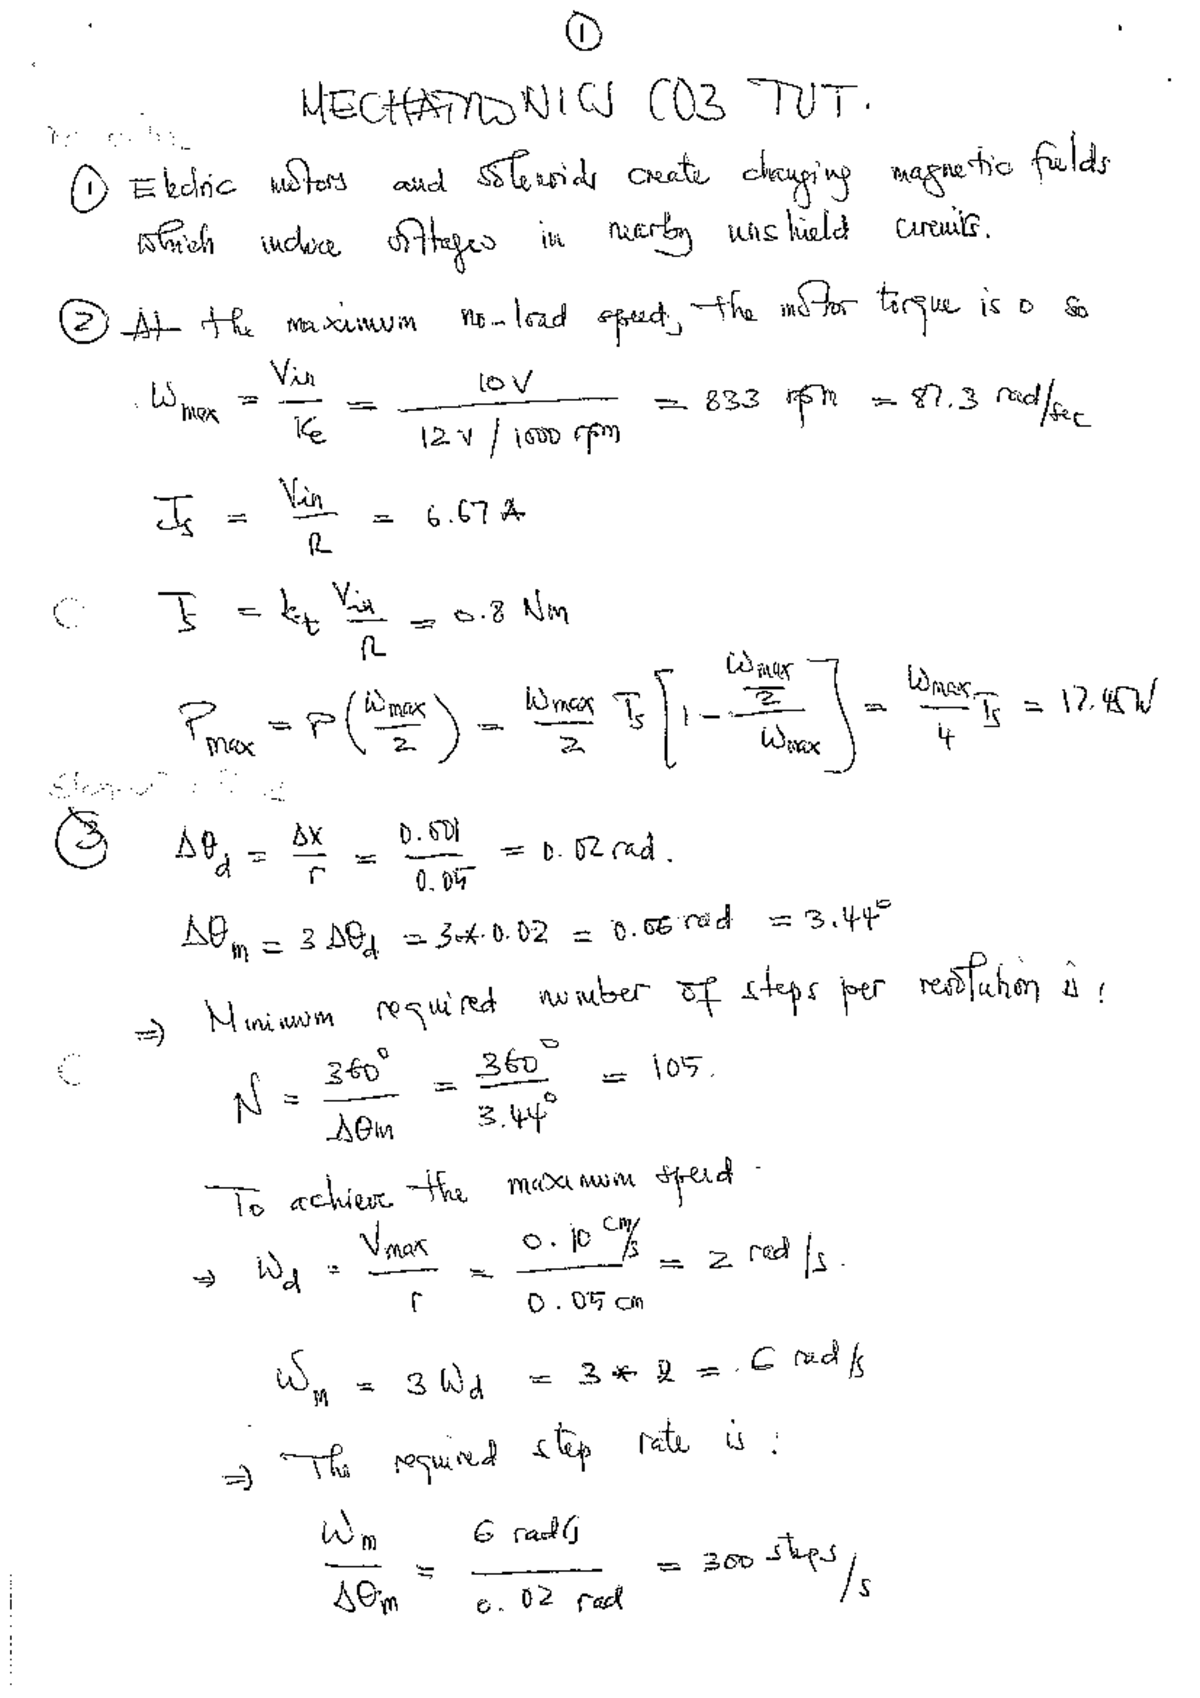 ①
MECHATRONICS CO3 TUT.
① Electric motors and solenoids create changing magnetic fields
which induce voltages in nearby unshield circuits.
② At the maximum no-load speed, the motor torque is 0 so
ω_max = V_in / K_e = 10V / (12V / 1000 rpm) = 833 rpm = 87.3 rad/sec
I_s = V_in / R = 6.67 A
T_s = k_t V_in / R = 0.8 Nm
P_max = P(ω_max / 2) = ω_max / 2 T_s [1 - (ω_max / 2) / ω_max] = ω_max / 4 T_s = 17.45W
③ Δθ_d = Δx / r = 0.001 / 0.05 = 0.02 rad.
Δθ_m = 3 Δθ_d = 3*0.02 = 0.06 rad = 3.44°
⇒ Minimum required number of steps per resolution is:
N = 360° / Δθm = 360° / 3.44° = 105.
To achieve the maximum speed.
⇒ ω_d = V_max / r = 0.10 cm/s / 0.05 cm = 2 rad/s.
ω_m = 3 ω_d = 3 * 2 = 6 rad/s
⇒ The required step rate is:
ω_m / Δθ_m = 6 rad/s / 0.02 rad = 300 steps/s